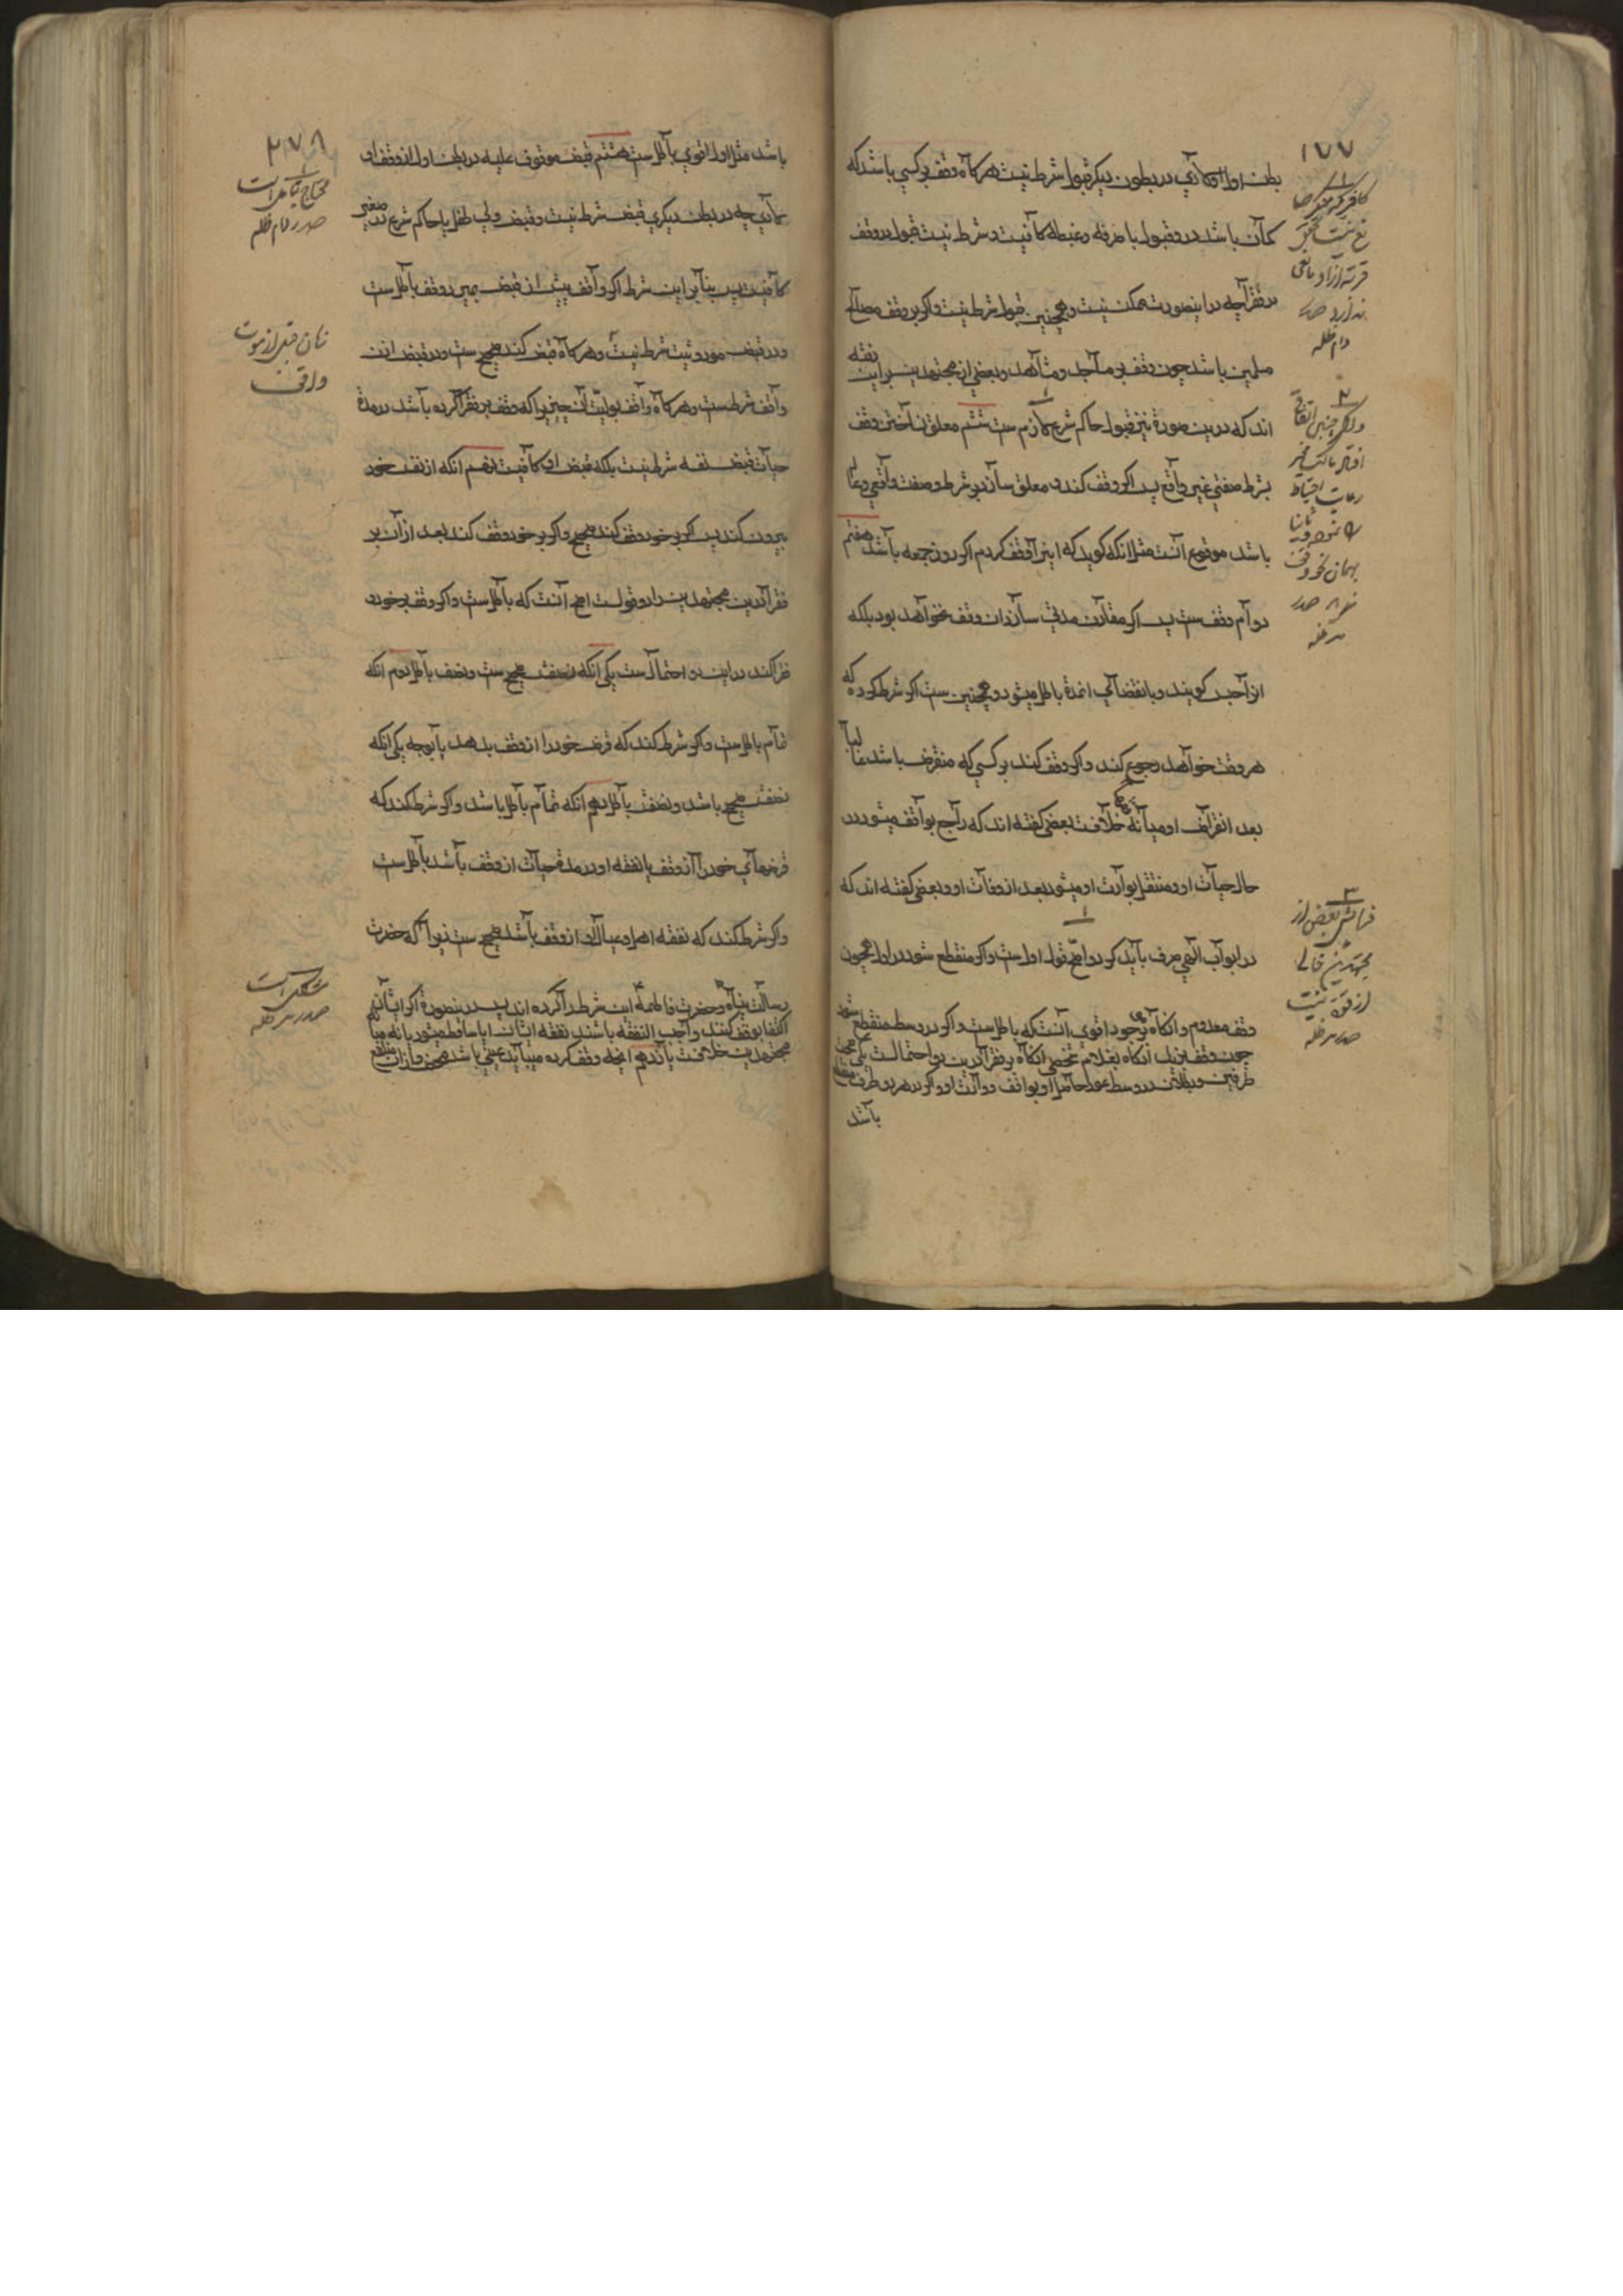 ۱۷۷
بطن اول اما در بطون دیکر قبول شرط نیست هرکاه وقف بر کسی باشد که
باشد در و قبول با صرفه و غبطه کافیست و شرط نیست قبول در وقف
بر فقرا چه در اینصورت ممکن نیست و همچنین قبول شرط نیست و اکر بر وقف مصالح
مسلمین باشد چون وقف بر مساجد و مشاهد و بعضی از مجتهدین بر این رفته
اند که درین صورة نیز قبول حاکم شرع لازم ست ششم معلق نساختن وقف
بشرط و صفتی غیر واقع پس اکر وقف کند و معلق سازد بر شرط و صفت واقعی و عالم
باشد بوقوع آنست مثل انکه کوید که اینرا وقف کردم اکر روز جمعه باشد هفتم
دوام وقف ست پس اکر مقارن مدتی سازد ان وقف نخواهد بود بلکه
انرا حبس کویند و با نقضای انمدة باطل میشود و همچنین ست اکر شرط کرده که
هر وقت خواهد رجوع کند و اکر وقف کند بر کسی که منقرض باشد غالبا
بعد انقراض او میانه مجتهدین خلافست بعضی کفته اند که راجع بواقف میشود در
حال حیات او و منتقل بوارث او میشود بعد از وفات او و بعضی کفته اند که
در ابواب البر صرف باید کرد و اصح قول اول ست و اکر منقطع شود در اول همچون
وقف بر معدوم و انکاه بر موجود اقوی آنست که باطل ست و اکر در وسط منقطع شود
چون وقف بر زید انکاه بغلام شخصی انکاه بر فقرا درین دو احتمالست یکی صحت
طرفین و بطلان در وسط عود حاصل او بواقف و وارث او و اکر در هر دو طرف منقطع
باشد
دام ظله
صدر مد ظله
فرمایش بعض از
مجتهدین خالی
از قوة نیست
صدر مد ظله
۲۷۸
باشد مثل اول اقوی باطل ست هشتم قبض موقوف علیه در بطن اول از وقف او
چه در بطن دیکری قبض شرط نیست و قبض ولی طفل یا حاکم شرع در صغیر
کافیست پس بنابر این شرط اکر واقف پیش از قبض بمیرد وقف باطل ست
و در قبض فوریت شرط نیست و هرکاه قبض کند صحیح ست و در قبض اذن
واقف شرط ست و هرکاه واقف بولیت آن چیزیرا که وقف بر فقرا کرده باشد در مدة
حیات قبض نفسه شرط نیست بلکه قبض او کافیست نهم انکه از نفس خود
بیرون کند پس اکر بر خود وقف کند صحیح و اکر بر خود وقف کند بعد از آن بر
فقرا درین مجتهدین را دو قولست اصح آنست که باطل ست و اکر وقف بر خود و
فقرا کند در این دو احتمال ست یکی انکه نصفش صحیح ست و نصف باطل دوم انکه
تمام باطل ست و اکر شرط کند که قرض خود را از وقف بدهد یا بوجه یکی انکه
نصفش صحیح باشد و نصفش باطل دوم انکه تمام باطل باشد و اکر شرط کند که
قرضهای خود را از وقف یا نفقه او در مدة حیات از وقف باشد باطل ست
و اکر شرط کند که نفقه اهل و عیال او از وقف باشد صحیح ست زیرا که حضرت
رسالت پناه و حضرت فاطمه این شرط را کرده اند پس درینصورة اکر ایشان
اکتفا بوقف کنند واجب النفقه باشند نفقه ایشان ایا ساقط میشود یا نه میان
مجتهدین خلافست یازدهم انچه وقف کرده میباید عینی باشد همچنین از ان منتفع
محتاج بتامل است
صدر دام ظله
واقف
مشکل است
صدر مد ظله